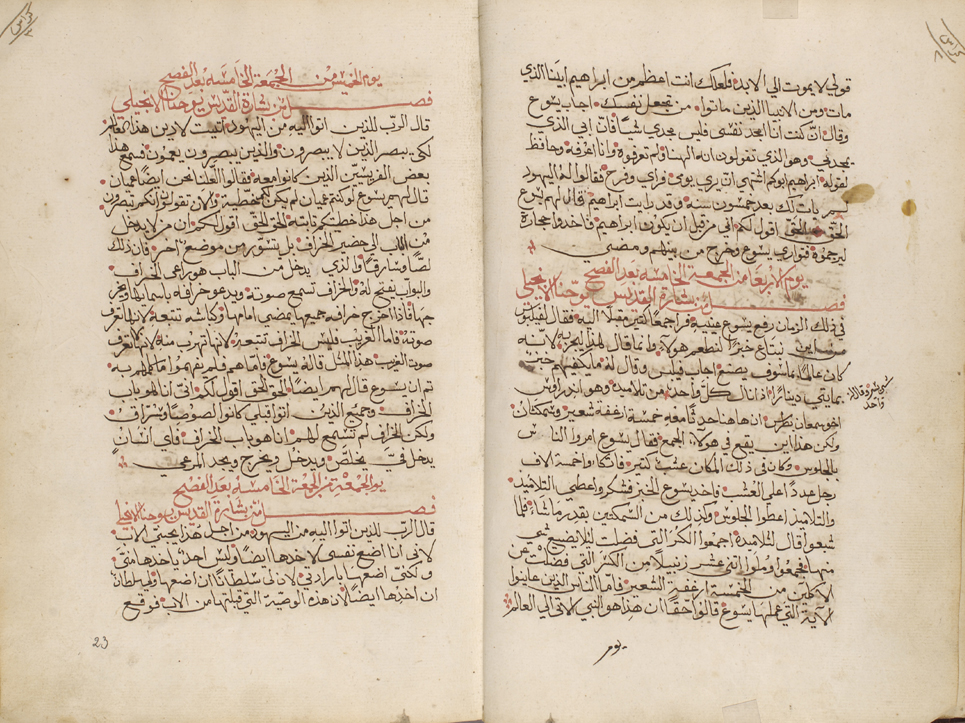 قولي لا يموت الى الابد فلعلك انت اعظم من ابراهيم ابينا الذي
مات ومن الانبيا الذين ماتوا من تجعل نفسك اجاب يسوع
وقال ان كنت انا امجد نفسي فليس مجدي شياً فان ابي الذي
يمجدني وهو الذي تقولون انه الهنا ولم تعرفوه وانا اعرفه وحافظ
لقوله ابراهيم ابوكم اشتهى ان يرى يومي فراى وفرح فقالوا له اليهود
بات لك بعد خمسون سنه وقد رايت ابراهيم قال لهم يسوع
الحق الحق اقول لكم اني من قبل ان يكون ابراهيم فاخذوا حجارة
ليرجموه فتوارى يسوع وخرج من بينهم ومضى
يوم الاربعا من الجمعة الخامسه بعد الفصح
فصل من بشارة القديس يوحنا الانجيلي
في ذلك الزمان رفع يسوع عينيه فرا جمعاً كثير مقبلاً اليه فقال لفيلبس
من اين نبتاع خبزاً لنطعم هولاء وانما قال هذا ليجربه لانه
كان عالماً بما سوف يصنع اجاب فيلبس وقال له ما يكفيهم خبز
بمايتي ديناراً اذا نال كل واحد من تلاميذه وهو اندراوس
شي يسير قال له
واحد
اخو سمعان بطرس ان هاهنا حدثاً معه خمسة ارغفة شعير وسمكتان
ولكن هذا اين يقع في هولاء الجمع فقال يسوع امروا الناس
بالجلوس وكان في ذلك المكان عشب كثير فاتكا خمسة الاف
رجل عدداً على العشب فاخذ يسوع الخبز فشكر واعطى التلاميذ
والتلاميذ اعطوا الجلوس وكذلك من السمكتين بقدر ما شاا فلما
شبعوا قال لتلاميذه اجمعوا الكسر التي فضلت ليلا يضيع شي
منها فجمعوا وملوا اثني عشر زنبيلاً من الكسر التي فضلت عن
الاكلين من الخمسة ارغفة الشعير فاما الناس الذين عاينوا
الاية التي عملها يسوع قالوا حقاً ان هذا هو النبي الاتي الى العالم
يوم
يوم الخميس من الجمعة الخامسه بعد الفصح
فصل من بشارة القديس يوحنا الانجيلي
قال الرب للذين اتوا اليه من اليهود اتيت لادين هذا العالم
لكي يبصر الذين لا يبصرون والذين يبصرون يعمون فسمع هذا
بعض الفريسيين الذين كانوا معه فقالوا العلنا نحن ايضاً عميان
قال لهم يسوع لو كنتم عميان لم يكن لكم خطية والان تقولون انكم تبصرون
من اجل هذا خطيتكم ثابته الحق الحق اقول لكم ان من لا يدخل
من الباب الى حضير الخراف بل يتسور من موضع اخر فان ذلك
لصاً وسارقاً والذي يدخل من الباب هو راعي الخراف
والبواب يفتح له والخراف تسمع صوته ويدعو خرافه باسمايها ويخر
جها فاذا اخرج خرافه جميعها يمضي امامها وكباشه تتبعه لانها تعرف
صوته فاما الغريب فليس الخراف تتبعه لانها تهرب منه لانها لا تعرف
صوت الغريب هذا المثل قاله يسوع فاما هم فلم يفهموا ما كلمهم به
ثم ان يسوع قال لهم ايضاً الحق الحق اقول لكم اني انا هو باب
الخراف وجميع الذين اتوا قبلي كانوا لصوصاً وسراق
ولكن الخراف لم تسمع لهم انا هو باب الخراف فاي انسان
يدخل فيّ يخلص ويدخل ويخرج ويجد المرعى
يوم الجمعة من الجمعة الخامسه بعد الفصح
فصل من بشارة القديس يوحنا الانجيلي
قال الرب للذين اتوا اليه من اليهود من اجل هذا يحبني الاب
لاني انا اضع نفسي لاخذها ايضاً وليس احد ياخذها مني
ولكنني اضعها بارادتي لان لي سلطاناً ان اضعها ولي سلطان
ان اخذها ايضاً لان هذه الوصية التي قبلتها من الاب فوقع
23